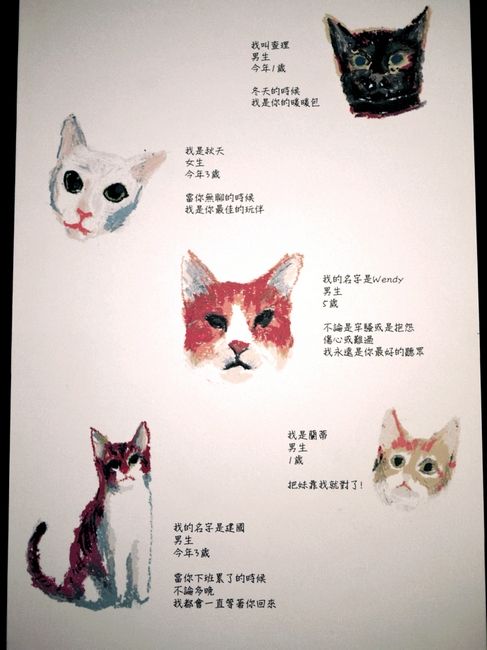 我叫查理
男生
今年1歲
冬天的時候
我是你的暖暖包
我是秋天
女生
今年3歲
當你無聊的時候
我是你最佳的玩伴
我的名字是Wendy
男生
5歲
不論是牢騷或是抱怨
傷心或難過
我永遠是你最好的聽眾
我是蘭蒂
男生
1歲
把妹靠我就對了!
我的名字是建國
男生
今年3歲
當你下班累了的時候
不論多晚
我都會一直等著你回來